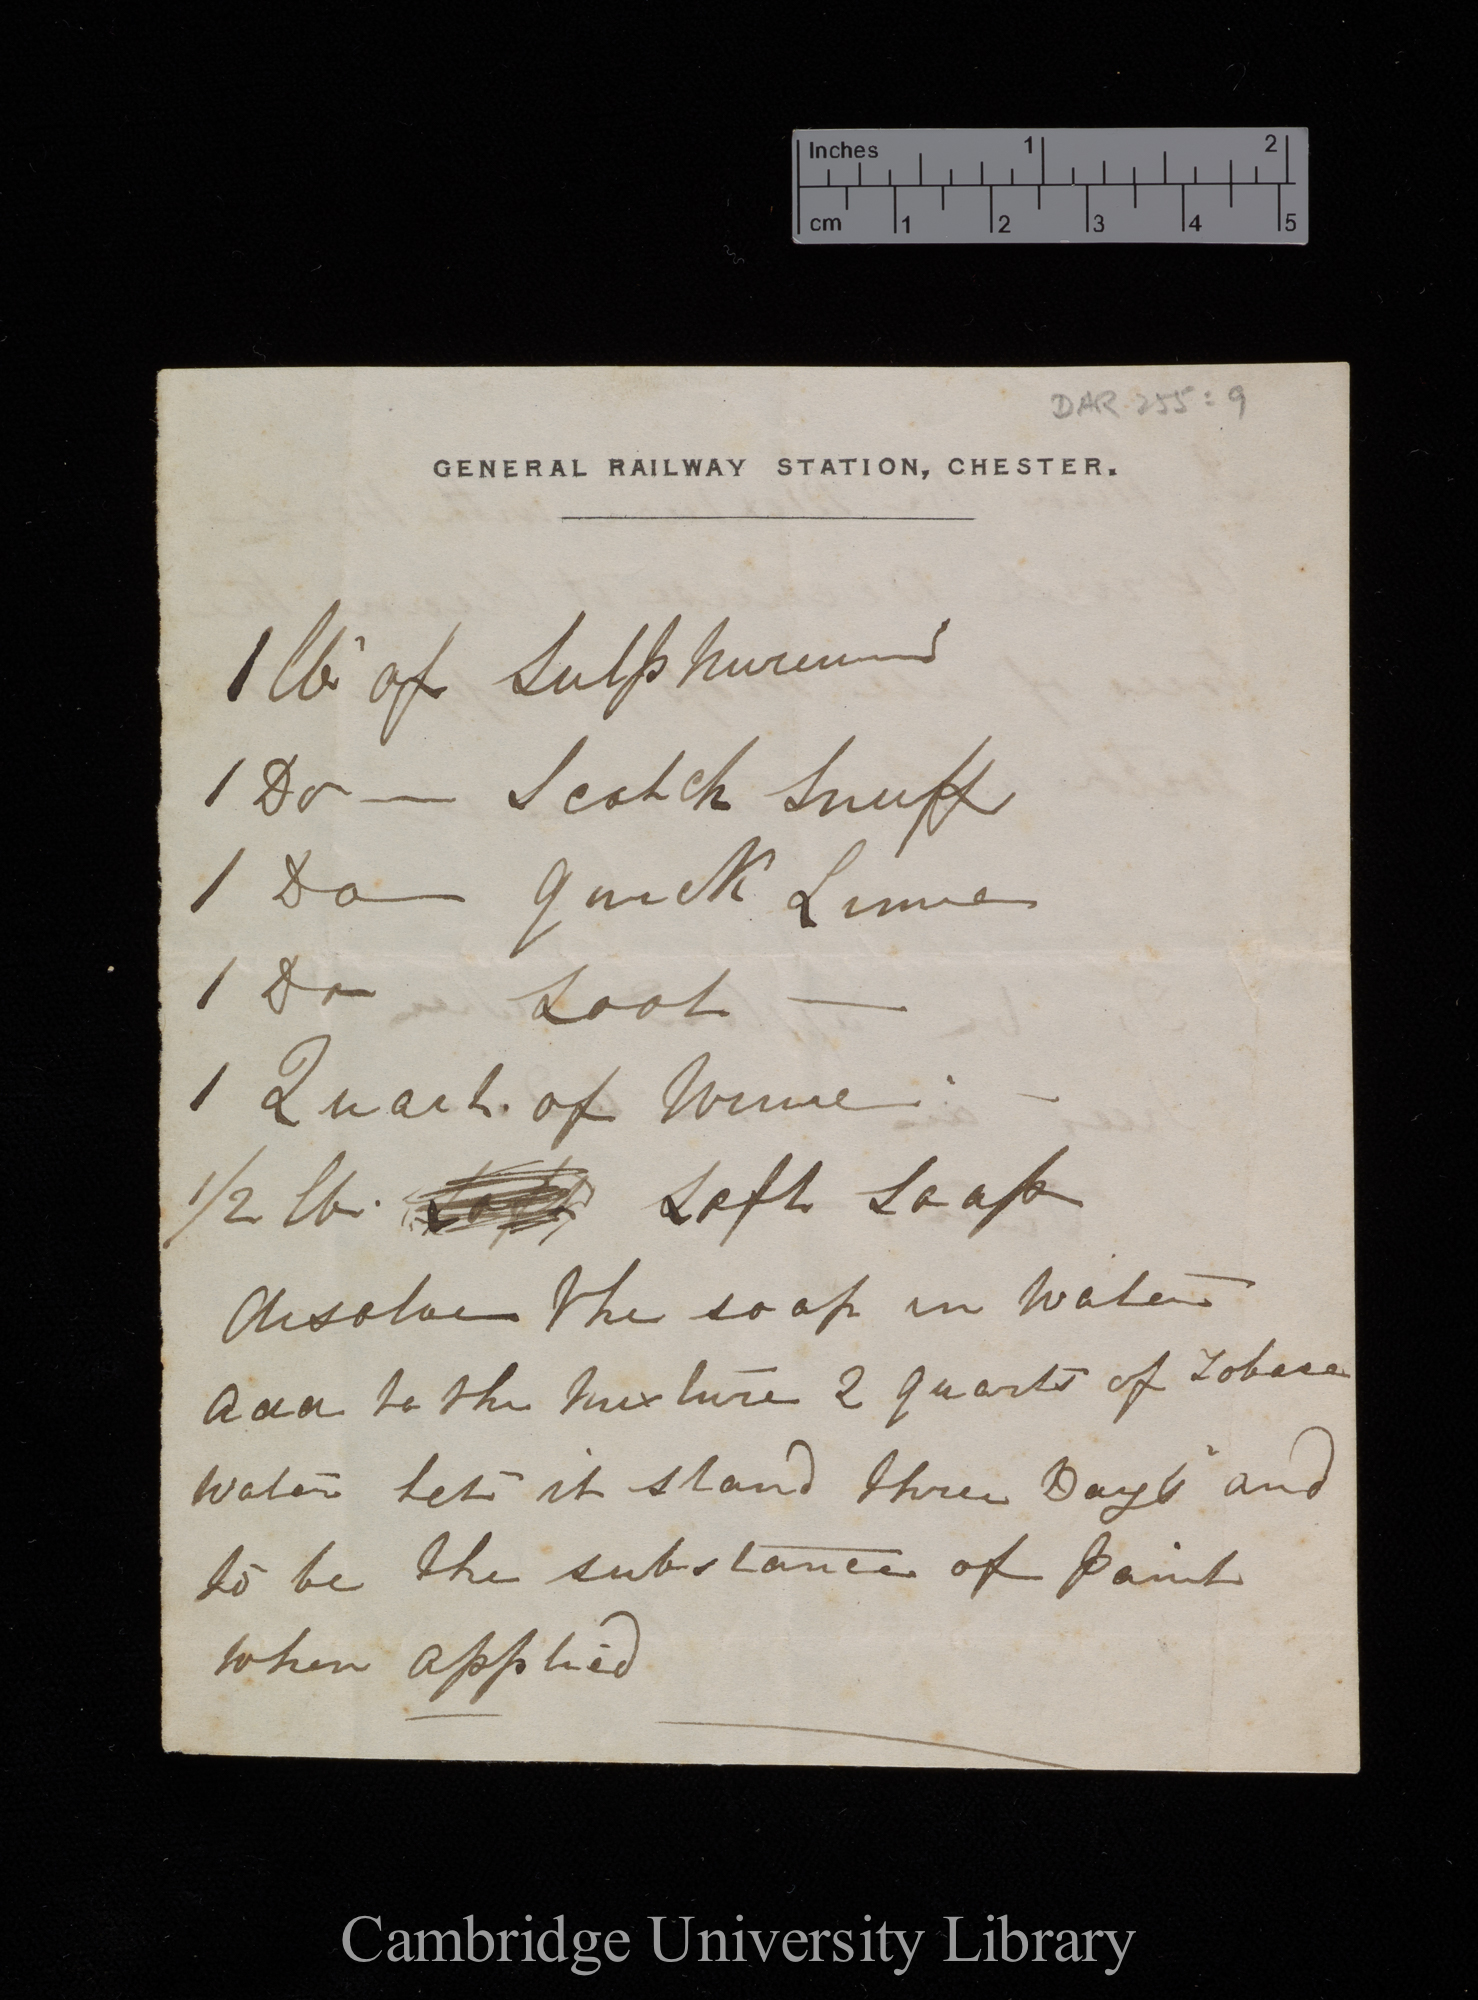 Inches 1 2
cm 1 2 3 4 5
DAR 255:9
GENERAL RAILWAY STATION, CHESTER.
1 lb of
1 Do — Scotch Snuff
1 Do — quick Lime
1 Do Soot —
1 Quart. of
1/2 lb. Soft Soft Soap
disolve the soap in Water
add to the mixture 2 quarts of Tobacco
Water let it stand three Days and
to be the substance of paint
when applied
Cambridge University Library